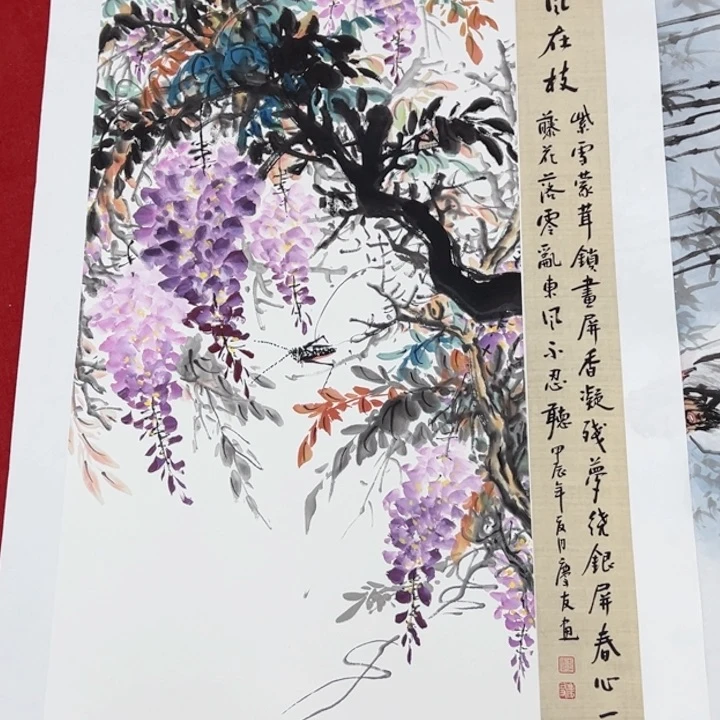 风在枝
紫雪蒙茸鎖畫屏香凝残夢绕銀屏春心一
藤花落零亂東风不忍聽
甲辰年夏月廖友画